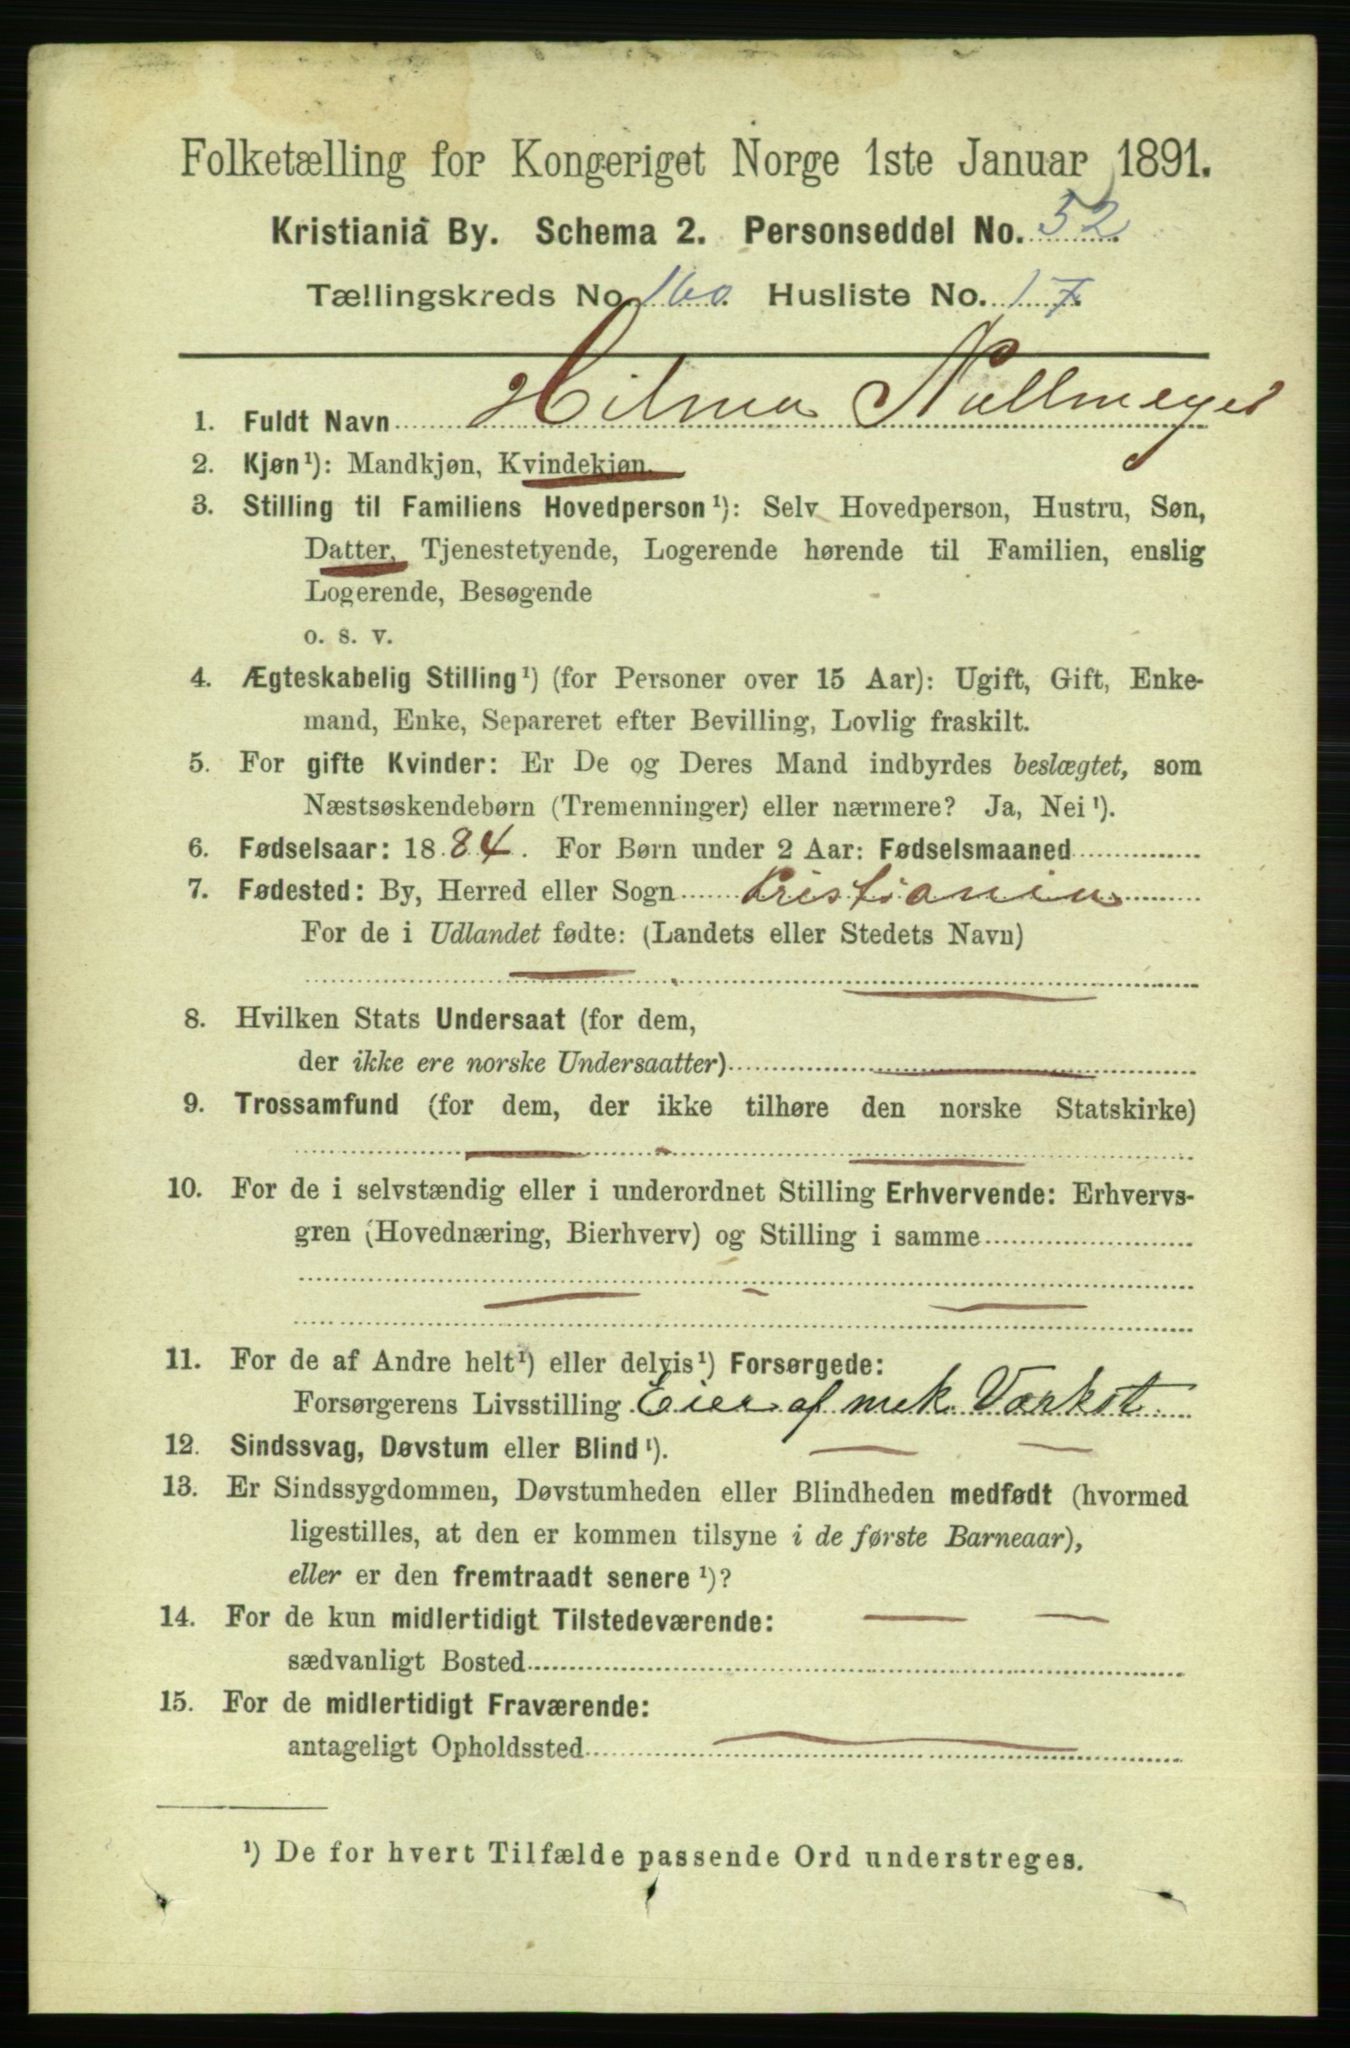 Folketælling for Kongeriget Norge 1ste Januar 1891.
Kristiania By. Schema 2. Personseddel No. 52.
Tællingskreds No. 160. Husliste No. 17.
1. Fuldt Navn Hilma Nullmeyer
2. Kjøn¹): Mandkjøn, Kvindekjøn.
3. Stilling til Familiens Hovedperson¹): Selv Hovedperson, Hustru, Søn,
Datter, Tjenestetyende, Logerende hørende til Familien, enslig
Logerende, Besøgende
o. s. v.
4. Ægteskabelig Stilling¹) (for Personer over 15 Aar): Ugift, Gift, Enke-
mand, Enke, Separeret efter Bevilling, Lovlig fraskilt.
5. For gifte Kvinder: Er De og Deres Mand indbyrdes beslægtet, som
Næstsøskendebørn (Tremenninger) eller nærmere? Ja, Nei¹).
6. Fødselsaar: 1884. For Børn under 2 Aar: Fødselsmaaned
7. Fødested: By, Herred eller Sogn Kristiania
For de i Udlandet fødte: (Landets eller Stedets Navn)
8. Hvilken Stats Undersaat (for dem,
der ikke ere norske Undersaatter)
9. Trossamfund (for dem, der ikke tilhøre den norske Statskirke)
10. For de i selvstændig eller i underordnet Stilling Erhvervende: Erhvervs-
gren (Hovednæring, Bierhverv) og Stilling i samme
11. For de af Andre helt¹) eller delvis¹) Forsørgede:
Forsørgerens Livsstilling Eier af mek. Værkst.
12. Sindssvag, Døvstum eller Blind¹).
13. Er Sindssygdommen, Døvstumheden eller Blindheden medfødt (hvormed
ligestilles, at den er kommen tilsyne i de første Barneaar),
eller er den fremtraadt senere¹)?
14. For de kun midlertidigt Tilstedeværende:
sædvanligt Bosted
15. For de midlertidigt Fraværende:
antageligt Opholdssted
¹) De for hvert Tilfælde passende Ord understreges.